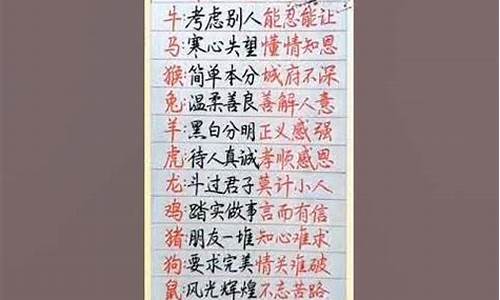 牛:考虑别人能忍能让
马:寒心失望懂情知恩
猴:简单本分城府不深
兔:温柔善良善解人意
羊:黑白分明正义感强
虎:待人真诚孝顺感恩
龙:斗过君子莫计小人
鸡:踏实做事言而有信
猪:朋友一堆知心难求
狗:要求完美情关难破
鼠:风光辉煌不忘苦路